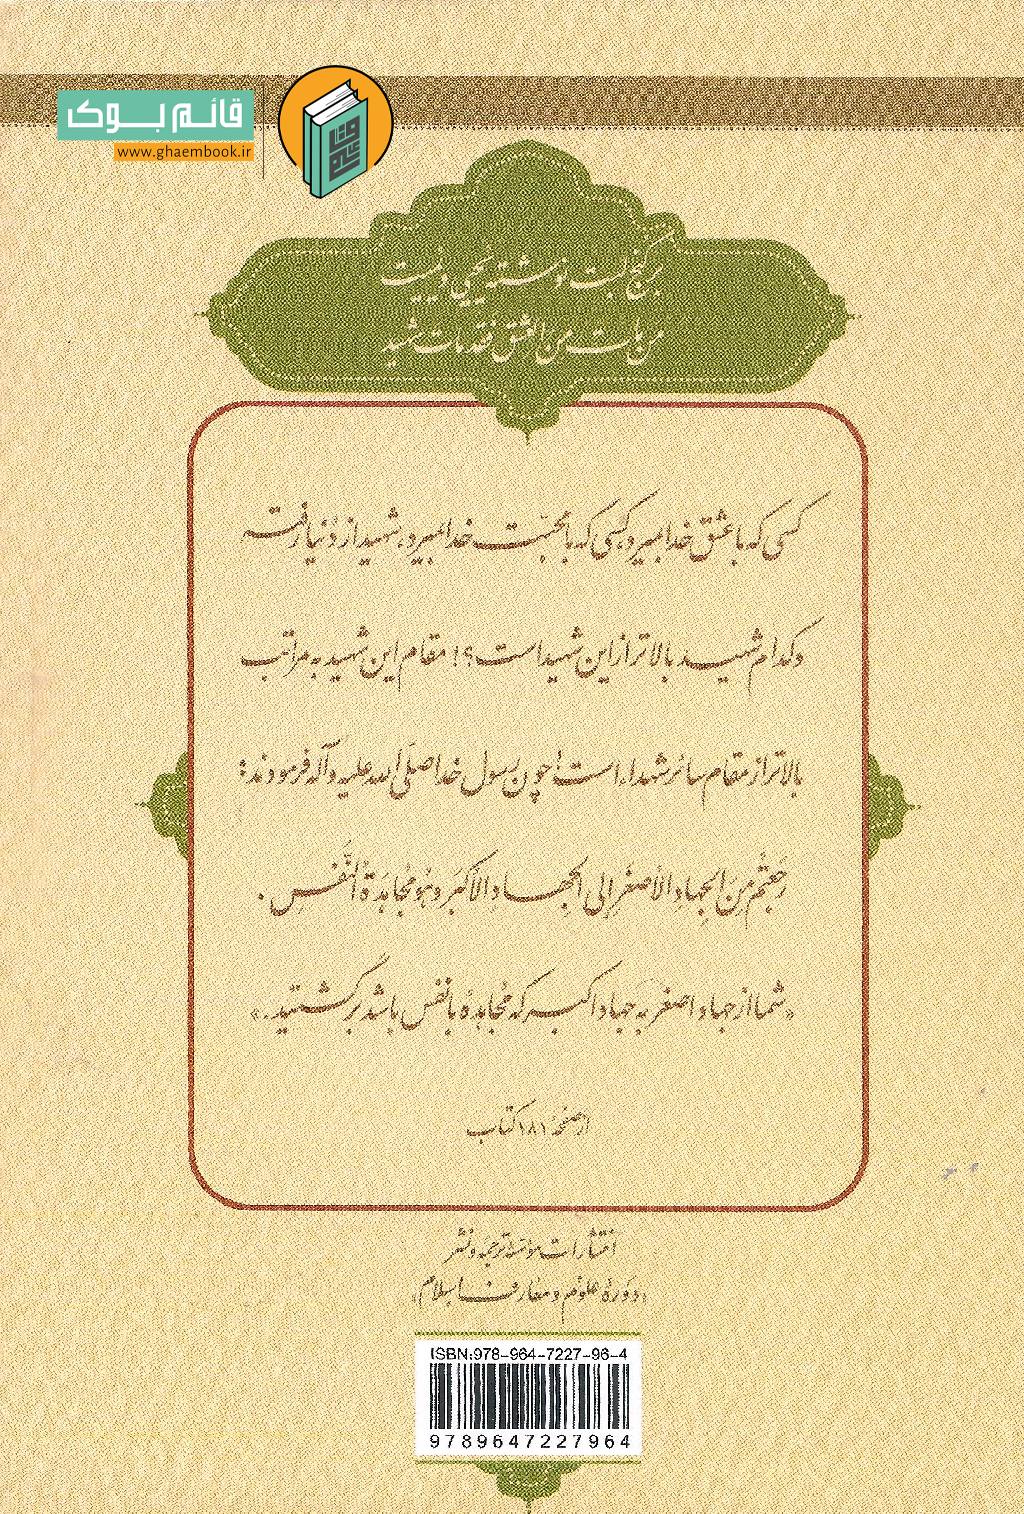 قائم بوک
www.ghaembook.ir
بر کنج لبت نوشته یحیی و یمیت
من مات من العشق فقد مات شهید
کسی که با عشق خدا بمیرد، کسی که با محبّت خدا بمیرد، شهید از دنیا رفته
و کدام شهید بالاتر از این شهید است؟! مقام این شهید به مراتب
بالاتر از مقام سائر شهداء است! چون رسول خدا صلّی الله علیه و آله فرمودند:
رَجَعتُم مِنَ الجِهادِ الأصغَرِ إلی الجِهادِ الأکبَر و هُوَ مُجاهَدَةُ النَّفسِ.
«شما از جهاد اصغر به جهاد اکبر که مُجاهدهٔ با نفس باشد برگشتید.»
از صفحهٔ ۱۸۱ کتاب
انتشارات مؤسسهٔ ترجمه و نشر
«دورهٔ علوم و معارف اسلام»
ISBN:978-964-7227-96-4
9789647227964